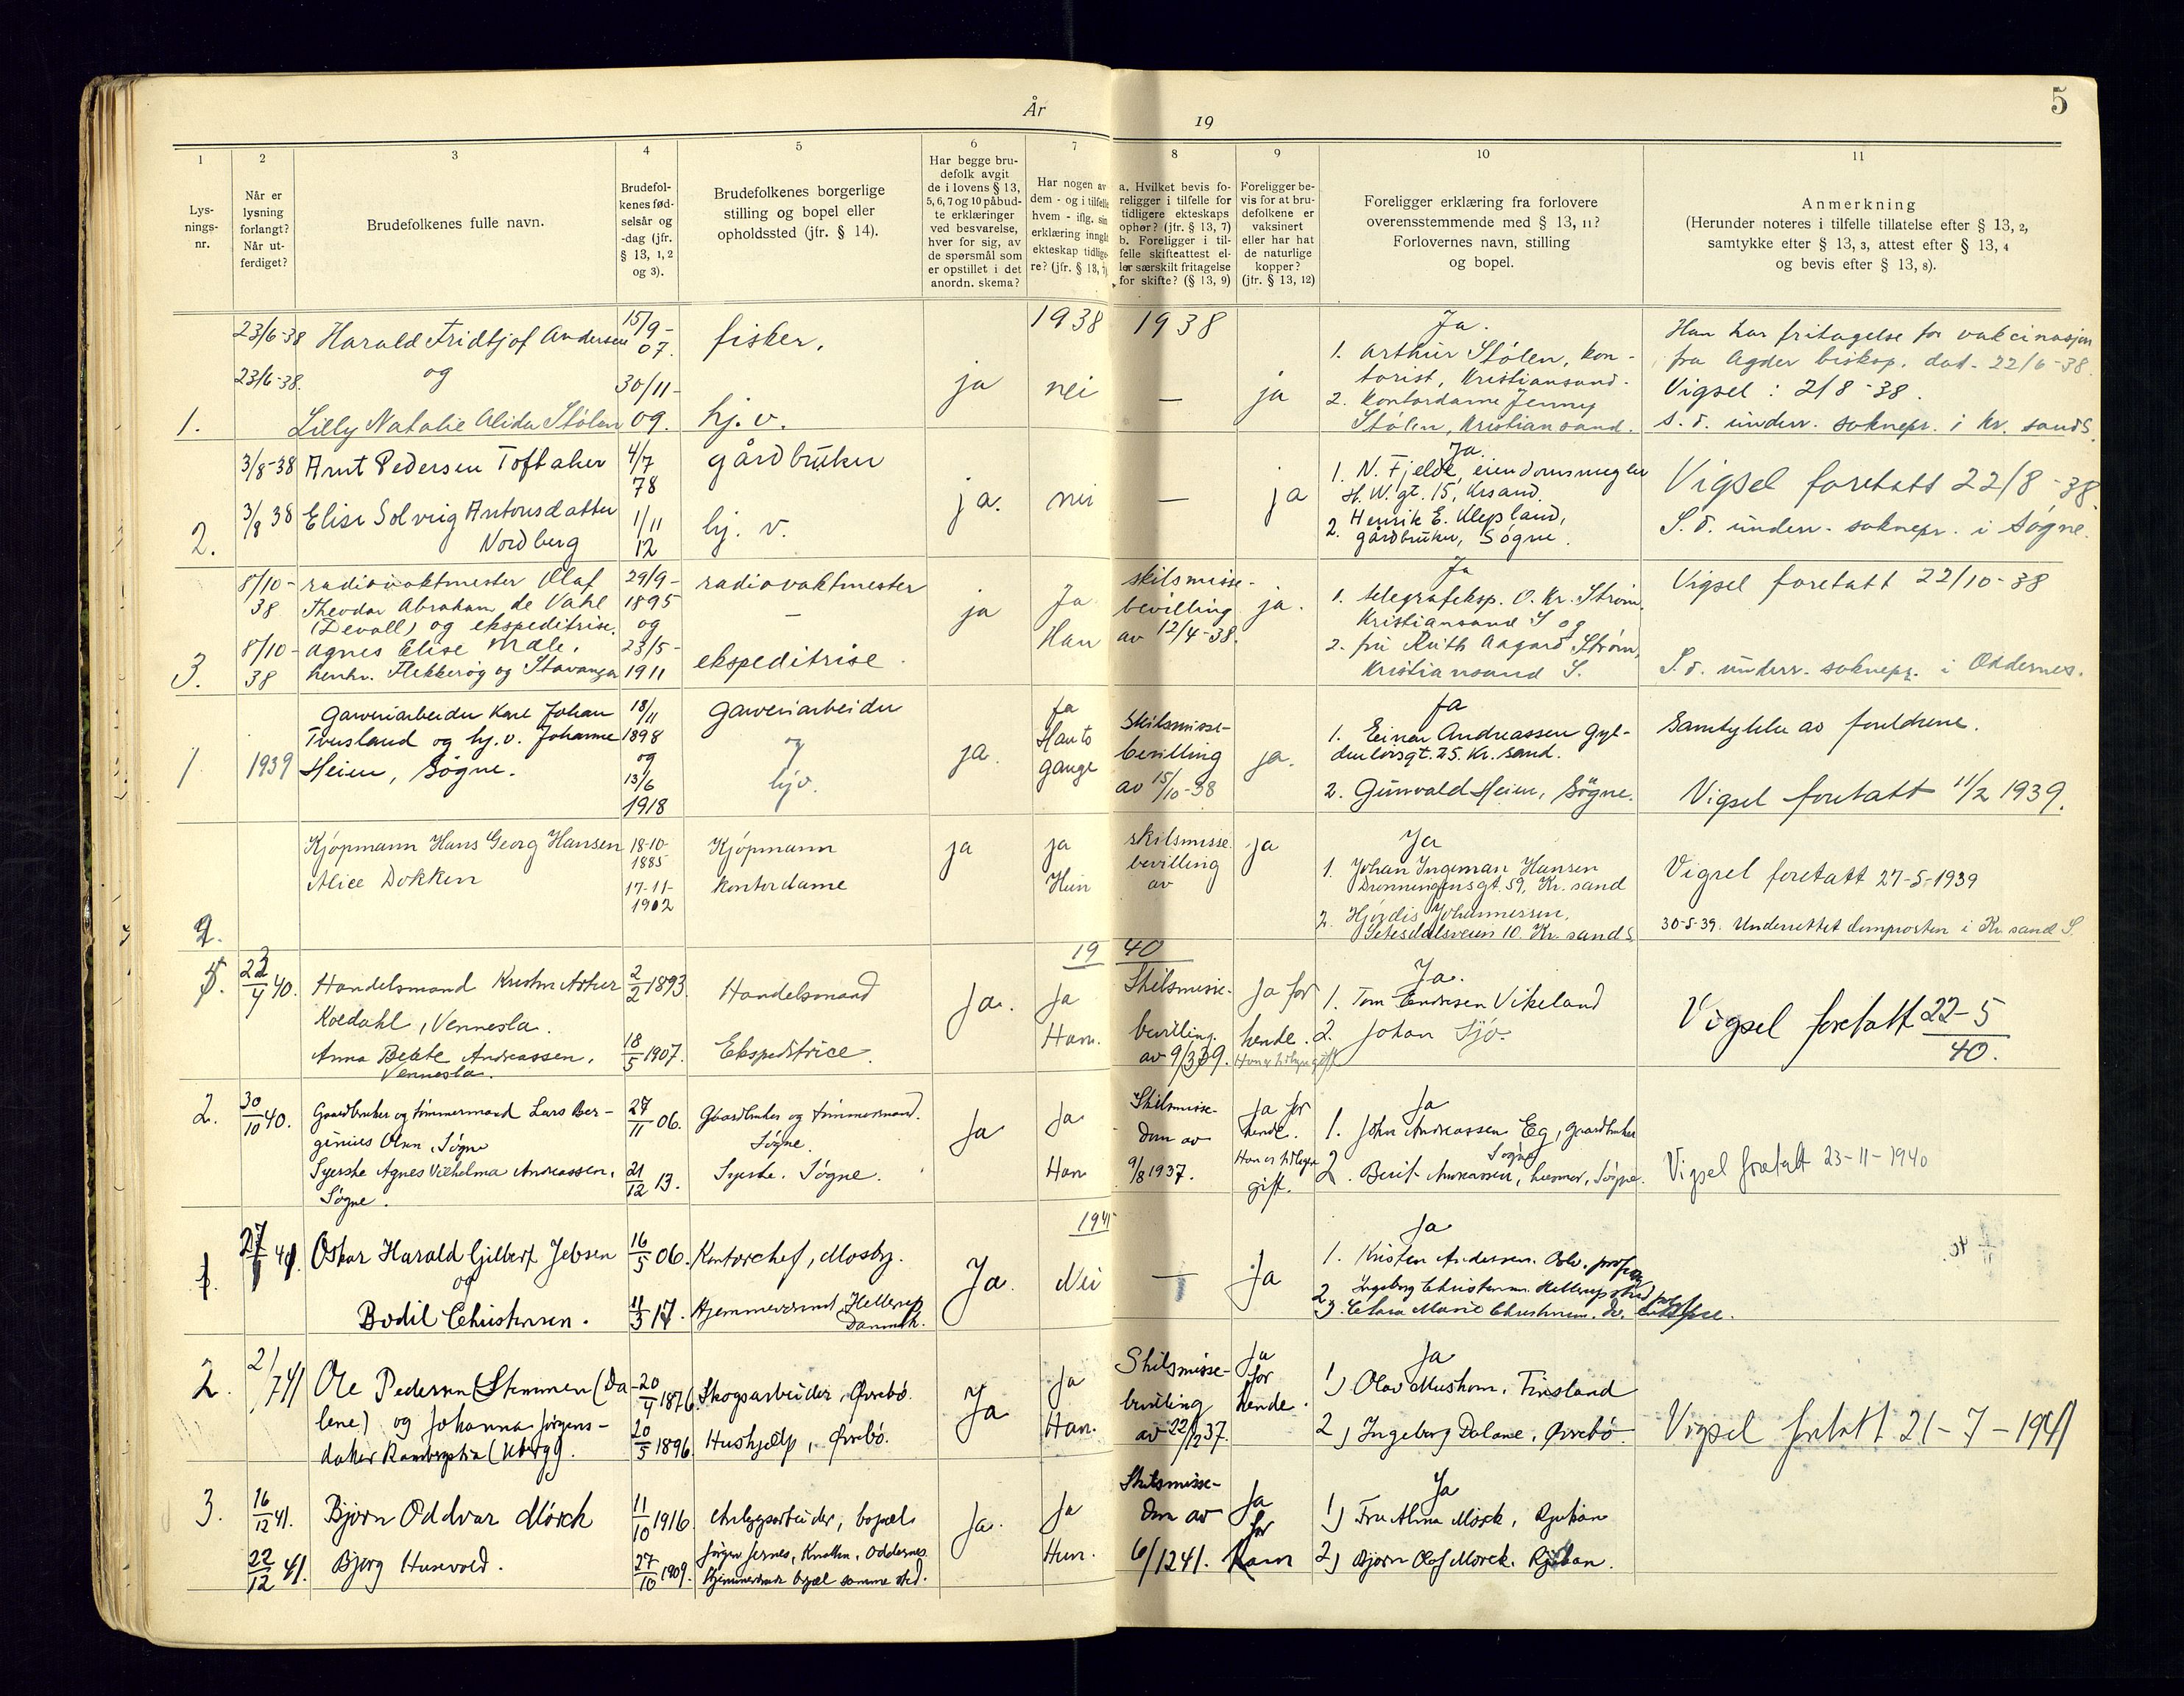 5
År 19
1
Lys-
nings-
nr.
2
Når er
lysning
forlangt?
Når ut-
ferdiget?
3
Brudefolkenes fulle navn.
4
Brudefol-
kenes fød-
selsår og
-dag (jfr.
§ 13, 1, 2
og 3).
5
Brudefolkenes borgerlige
stilling og bopel eller
opholdssted (jfr. § 14).
6
Har begge bru-
defolk avgit
de i lovens § 13,
5, 6, 7 og 10 påbud-
te erklæringer
ved besvarelse,
hver for sig, av
de spørsmål som
er opstillet i det
anordn. skema?
7
Har nogen av
dem - og i tilfelle
hvem - iflg. sin
erklæring inngått
ekteskap tidlige-
re? (jfr. § 13, 7)
8
a. Hvilket bevis fo-
religger i tilfelle for
tidligere ekteskaps
ophør? (jfr. § 13, 7)
b. Foreligger i til-
felle skifteattest el-
ler særskilt fritagelse
for skifte? (§ 13, 9)
9
Foreligger be-
vis for at bru-
defolkene er
vaksinert
eller har hat
de naturlige
kopper?
(jfr. § 13, 12)
10
Foreligger erklæring fra forlovere
overensstemmende med § 13, 11?
Forlovernes navn, stilling
og bopel.
11
Anmerkning
(Herunder noteres i tilfelle tillatelse efter § 13, 2,
samtykke efter § 13, 3, attest efter § 13, 4
og bevis efter § 13, 8).
1938 1938
1.
23/6-38
23/6-38.
Harald Fridtjof Andersen
og
Lilly Natalie Alida Stølen
15/9-
07.
30/11-
09.
fisker.
hj. v.
ja
nei
—
ja
Ja.
1. Arthur Stølen, kon-
torist, Kristiansand.
2. Kontordame Jenny
Stølen, Kristiansand.
Han har fritagelse for vakcinasjon
fra Agder biskop. dat. 22/6-38.
Vigsel: 2/8-38.
S. d. underr. soknepr. i Kr. sand S.
2.
3/8-38
3/8 38
Arnt Pedersen Toftaker
Elise Solveig Antonsdatter
Nordberg
4/7
78
1/11
12
gårdbruker
hj. v.
ja.
nei
—
ja
Ja.
1. N. Fjelde, eiendomsmegler
H. W. gt. 15, Krsand.
2. Henrik E. Klepland,
gårdbruker, Søgne.
Vigsel foretatt 22/8-38
S. d. underr. soknepr. i Søgne.
3.
8/10-
38
8/10-
38
radiovaktmester Olaf
Theodor Abraham de Vahl
(Devoll) og ekspeditrise
Agnes Elise Mæle,
henhv. Flekkerøy og Stavanger
29/9-
1895
og
23/5-
1911
radiovaktmester
—
ekspeditrise.
ja
Ja
Han
skilsmisse-
bevilling
av 12/4-38.
ja.
Ja
1. telegrafeksp. O. Kr. Strøm,
Kristiansand S og
2. fru Ruth Aagard Strøm,
Kristiansand S.
Vigsel foretatt 22/10-38
S. d. underr. soknepr. i Oddernes.
1
1939
Garveriarbeider Karl Johan
Tvusland og hj. v. Johanne
Heien, Søgne.
18/11
1898
og
13/6
1918
Garveriarbeider
og
hjv.
ja.
Ja
Han to
gange
Skilsmisse-
bevilling
av 15/10-38
ja.
Ja
1. Einar Andreassen Gyl-
denløvsgt. 25. Kr. sand.
2. Gunvald Heien, Søgne.
Samtykke av foreldrene.
Vigsel foretatt 11/2 1939.
2.
Kjøpmann Hans Georg Hansen
Alice Dokken
18-10-
1885
17-11-
1902
Kjøpmann
kontordame
ja
ja
Hun
skilsmisse
bevilling
av
ja
Ja
1. Johan Ingeman Hansen
Dronningensgt. 59, Kr. sand
2. Hjørdis Johannessen,
Setesdalsveien 10. Kr. sand S.
Vigsel foretatt 27-5-1939
30-5-39. Underrettet domprosten i Kr. sand S.
19 40
22/4 40.
Handelsmand Kristen Artur
Koldahl, Vennesla.
Anna Beate Andreassen,
Vennesla.
2/2 1893.
18/5 1907.
Handelsmand
Ekspeditrice.
Ja.
Ja
Han.
Skilsmisse-
bevilling
av 9/3 39.
Ja for
hende.
Han er tidligere gift
Ja.
1. Tom Endresen Vikeland
2. Johan Sjö.
Vigsel foretatt 22-5
40.
2.
30/10 40.
Gaardbruker og tømmermand Lars Ber-
ginius Olsen, Søgne
Syerske Agnes Vilhelma Andreassen,
Søgne.
27/11 06.
21/12 13.
Gaardbruker og tømmermand.
Søgne.
Syerske. Søgne.
Ja
Ja
Han
Skilsmisse-
Dom av
9/8 1937.
Ja for
hende.
Han er tidligere
gift.
Ja
1. John Andreassen Eg, gaardbruker
Søgne
2. Berit Andreassen, husmor, Søgne.
Vigsel foretatt 23-11-1940
1941
1.
Oskar Harald Gilbert Jebsen
og
Bodil Christensen.
16/5 06.
11/3 17.
Kontorchef, Mosby.
Hjemmeværende Hellerup
Danmark.
Ja.
Nei
—
Ja
Ja
1. Kristen Andersen. Oslo.
2. Ingeborg Christensen. Hellerup
3. Clara Marie Christensen. do.
2.
21/7 41
Ole Pedersen Stemmen (Da-
lene) og Johanna Jørgens-
datter
20/4 1876.
20/5 1896.
Skogsarbeider, Øvrebø.
Hushjælp, Øvrebø.
Ja
Ja
Han.
Skilsmisse-
bevilling
av 22/12 37.
Ja
for
hende.
Ja
1) Olav Mushom. Finsland
2) Ingeborg Dalane, Øvrebø.
Vigsel foretatt 21-7-1941
3.
16/12 41.
22/12 41.
Bjørn Oddvar Mørck
Bjørg Husevold.
11/10 1916
27/10 1909.
Anleggsarbeider, bopæl
Jørgen Jernes, Knallen, Oddernes.
Hjemmeværende bopæl samme sted.
Ja.
Ja
Hun.
Skilsmisse-
Dom av
6/12 41.
Ja
for
ham
Ja
1) Fru Alma Mørck, Rjukan
2) Bjørn Olaf Mørck. Rjukan.